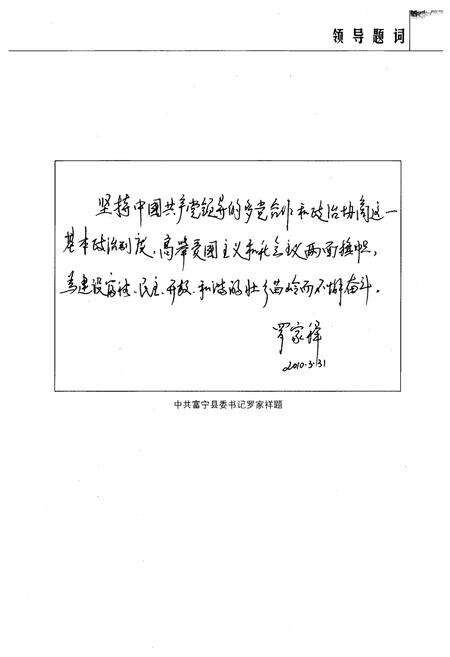 领导题词
坚持中国共产党领导的多党合作和政治协商这一
基本政治制度，高举爱国主义和社会主义两面旗帜，
为建设富裕、民主、开放、和谐的壮乡苗岭而不懈奋斗。
罗家祥
2010.3.31
中共富宁县委书记罗家祥题